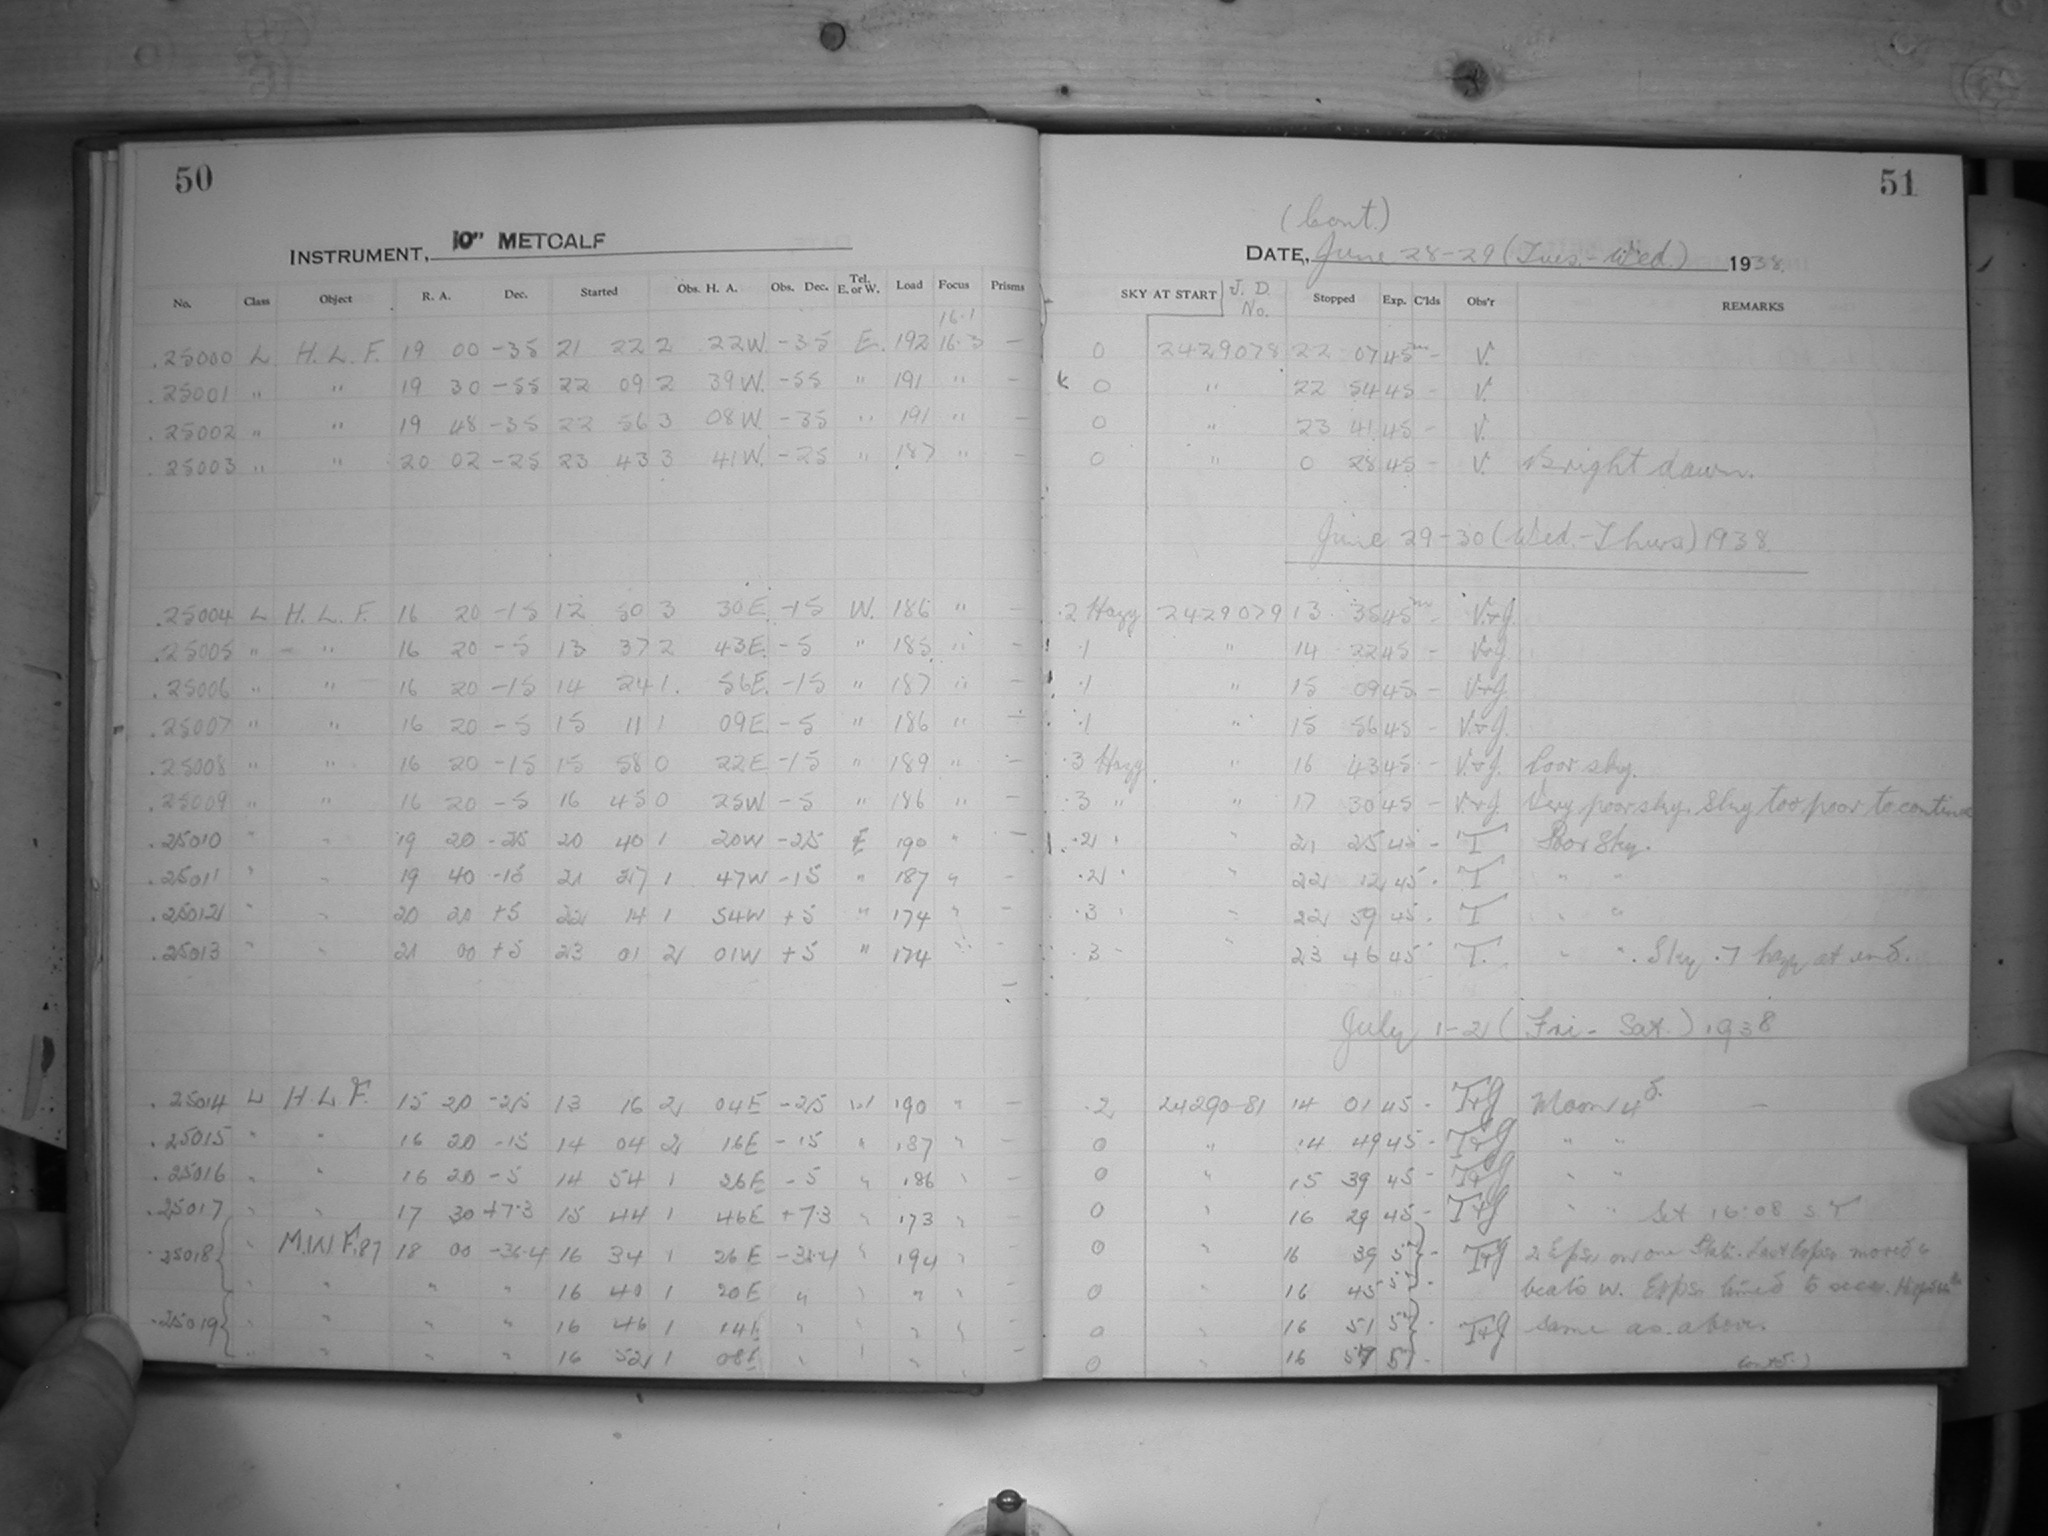 50
INSTRUMENT, 10" METCALF
No. Class Object R. A. Dec. Started Obs. H. A. Obs. Dec. Tel. E. or W. Load Focus Prisms
16.1
.25000 L H. L. F. 19 00 -35 21 22 2 22W -35 E. 192 16.3 —
.25001 " " 19 30 -55 22 09 2 39W. -55 " 191 " —
.25002 " " 19 48 -35 22 56 3 08W. -35 " 191 " —
.25003 " " 20 02 -25 23 43 3 41W. -25 " 187 " —
.25004 L H. L. F. 16 20 -15 12 50 3 30E. -15 W. 186 " —
.25005 " " 16 20 -5 13 37 2 43E. -5 " 185 " —
.25006 " " 16 20 -15 14 24 1. 56E. -15 " 187 " —
.25007 " " 16 20 -5 15 11 1 09E -5 " 186 " —
.25008 " " 16 20 -15 15 58 0 22E -15 " 189 " —
.25009 " " 16 20 -5 16 45 0 25W -5 " 186 " —
.25010 " " 19 20 -25 20 40 1 20W -25 E 190 " —
.25011 " " 19 40 -15 21 27 1 47W -15 " 187 " —
.25012 " " 20 20 +5 22 14 1 54W +5 " 174 " —
.25013 " " 21 00 +5 23 01 2 01W +5 " 174 " —
—
.25014 L H L F. 15 20 -25 13 16 2 04E -25 W 190 " —
.25015 " " 16 20 -15 14 04 2 16E -15 " 187 " —
.25016 " " 16 20 -5 14 54 1 26E -5 " 186 " —
.25017 " " 17 30 +7.3 15 44 1 46E +7.3 " 173 " —
.25018 " M.W.F. 87 18 00 -36.4 16 34 1 26E " 194 "
" " " " 16 40 1 20E " " " "
.25019 " " " " 16 46 1 14E " " " "
" " " " 16 52 1 08E " " " "
51
(Cont.)
DATE, June 28-29 (Tues.-Wed.) 1938.
SKY AT START J. D. No. Stopped Exp. C'lds Obs'r REMARKS
0 2429078 22 07 45m - V.
0 " 22 54 45 - V.
0 " 23 41 45 - V.
0 " 0 28 45 - V. Bright dawn.
June 29-30 (Wed.-Thurs) 1938.
.2 Hazy 2429079 13 35 45m - V.+J.
.1 " 14 22 45 - V+J.
.1 " 15 09 45 - V+J.
.1 " 15 56 45 - V.+J.
.3 Hazy " 16 43 45 - V.+J. Poor sky.
.3 " " 17 30 45 - V+J Very poor sky. Sky too poor to continue
.2 " " 21 25 45 - T Poor Sky.
.2 " " 22 12 45 - T " "
.3 " " 22 59 45 - T " "
.3 " " 23 46 45 - T. " ". Sky .7 hazy at end.
July 1-2 (Fri-Sat.) 1938
.2 2429081 14 01 45 - T+J Moon 4d.
0 " 14 49 45 - T+J " "
0 " 15 39 45 - T+J " "
0 " 16 29 45 - T+J " " Set 16:08 S T
0 " 16 39 5 - T+J 2 Exps. on one Plate. Last Exp. moved 6
0 " 16 45 5 - beats W. Exps. timed to
0 " 16 51 5 - T+J Same as above.
0 " 16 57 5 -
(contd.)